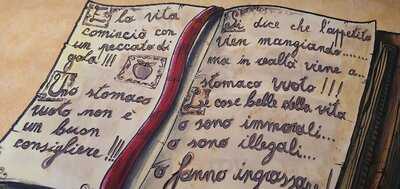 E la vita
cominciò con
un peccato di
gola!!!
Uno stomaco
vuoto non è
un buon
consigliere!!!!
Si dice che l'appetito
vien mangiando.......
ma in realtà viene a...
stomaco vuoto!!!
Le cose belle della vita
o sono immorali...
o sono illegali...
o fanno ingrassare!